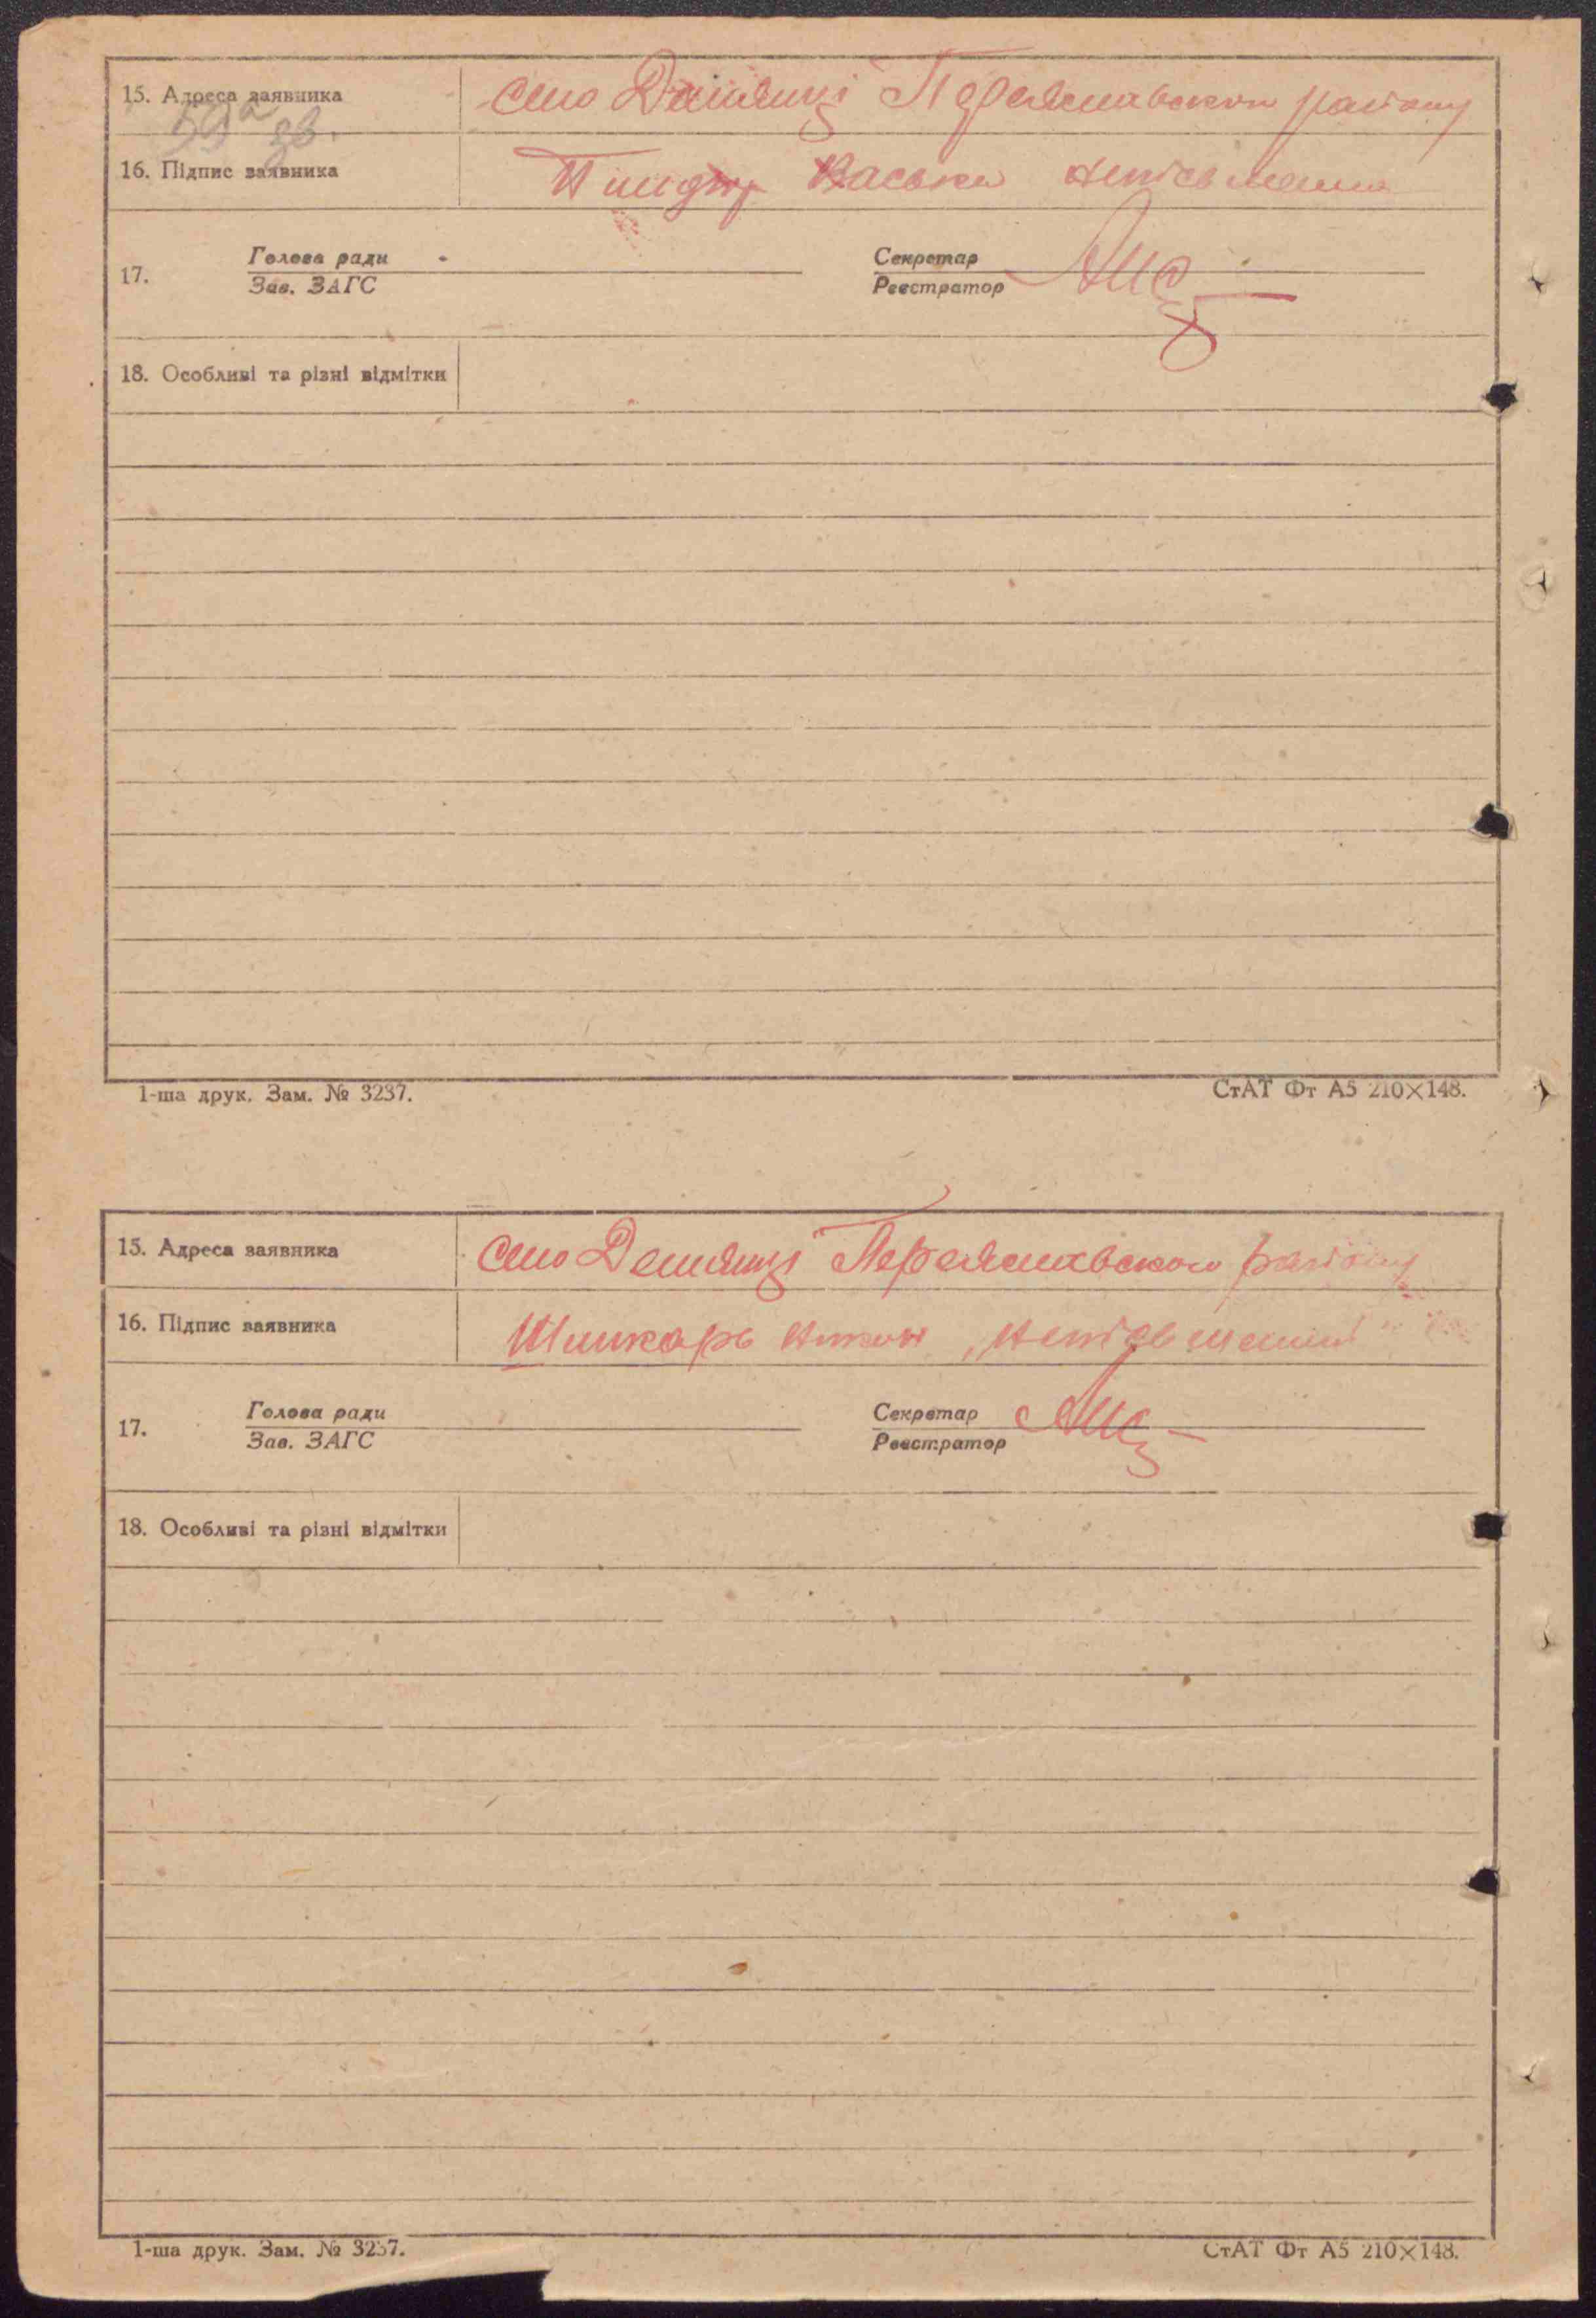 15. Адреса заявника село Демянці Переяславського району
59а зв.
16. Підпис заявника Васька неписьменна
17. Голова ради Секретар
Зав. ЗАГС Реєстратор
18. Особливі та різні відмітки
1-ша друк. Зам. № 3237. СтАТ Фт А5 210×148.
15. Адреса заявника село Демянці Переяславського району
16. Підпис заявника Шинкарь неписьменний
17. Голова ради Секретар
Зав. ЗАГС Реєстратор
18. Особливі та різні відмітки
1-ша друк. Зам. № 3237. СтАТ Фт А5 210×148.